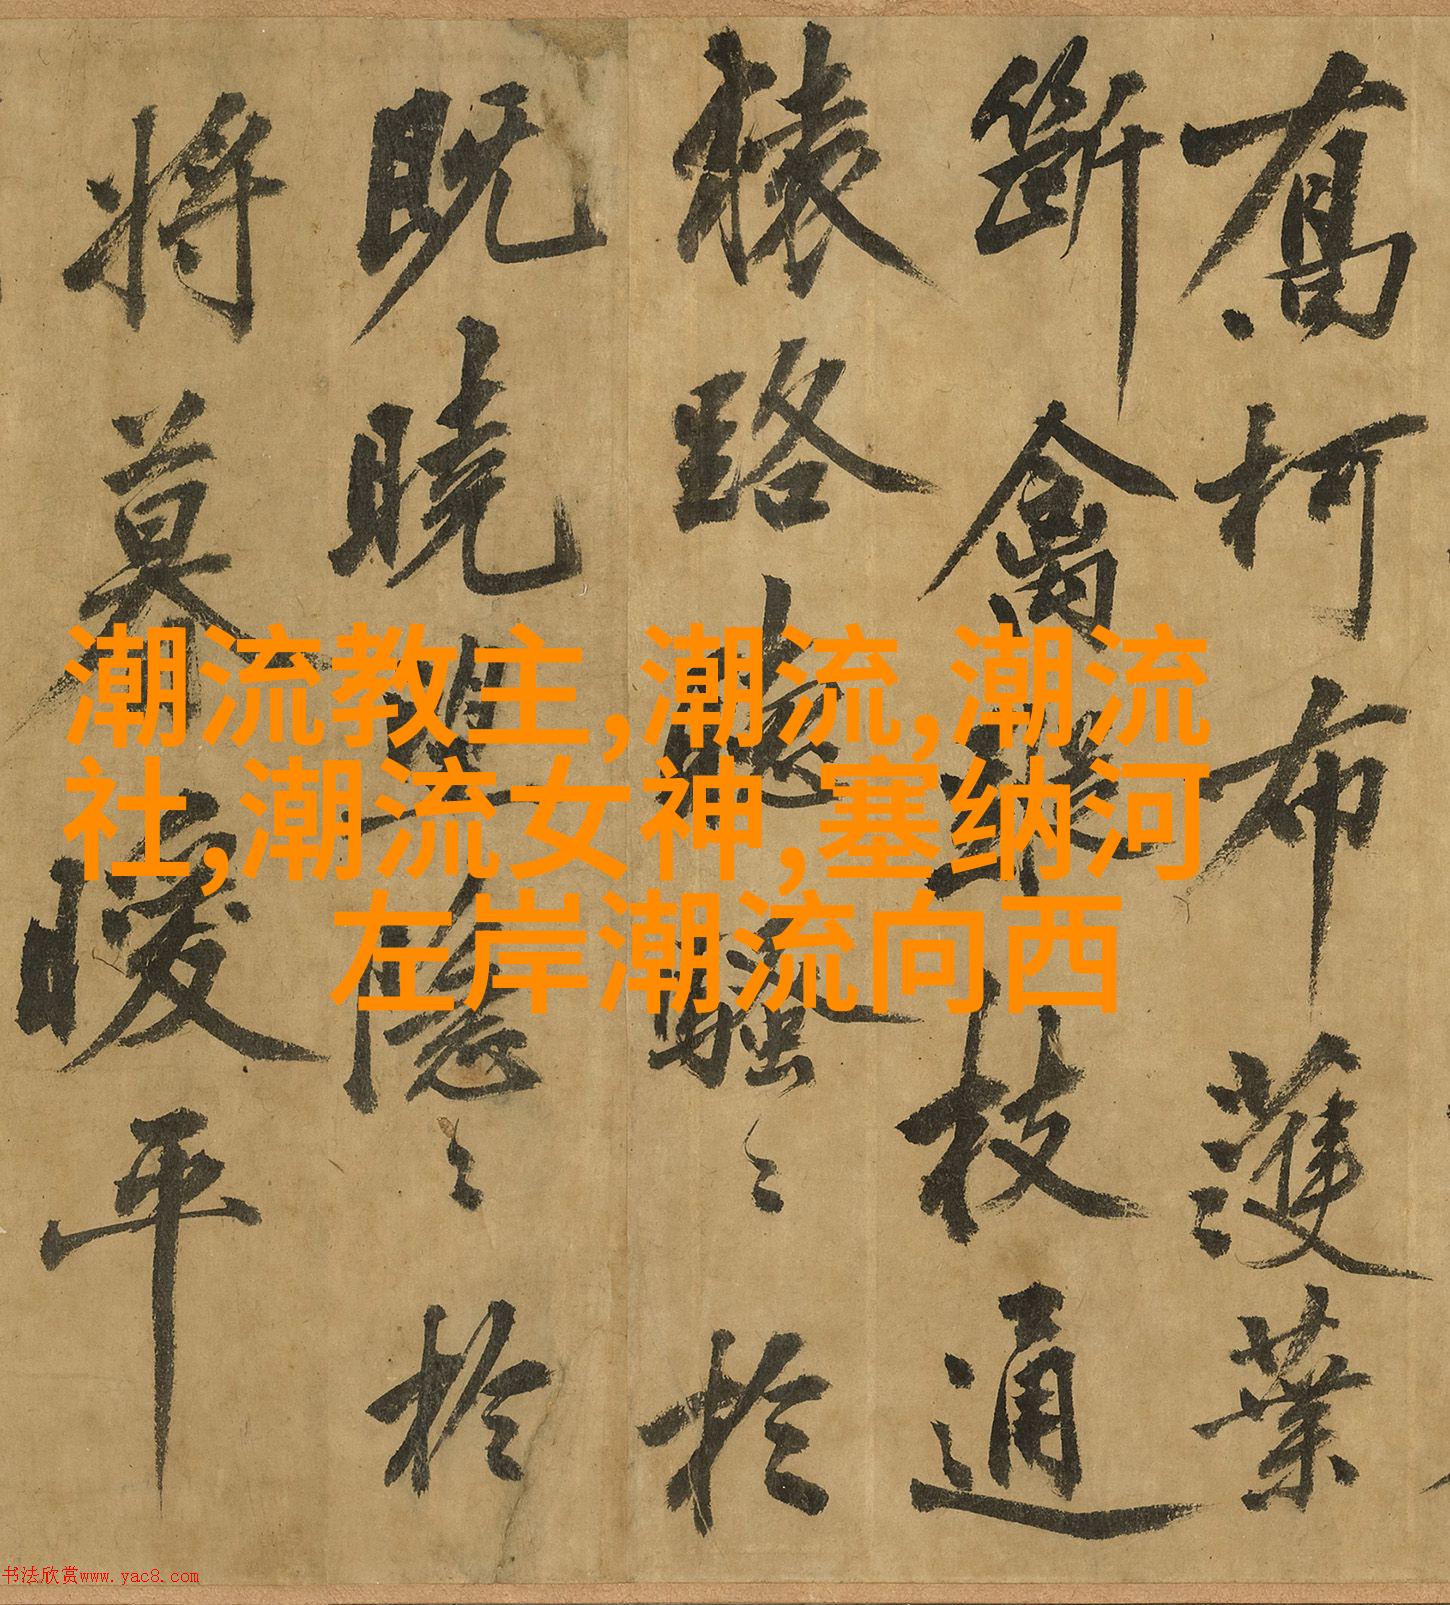 喬柯布護葉
斷禽枝通
猿路聽騷〻於
既曉望隱〻於
將暮曖平
潮流教主,潮流,潮流
社,潮流女神,塞纳河
左岸潮流向西
书法欣赏www.yac8.com